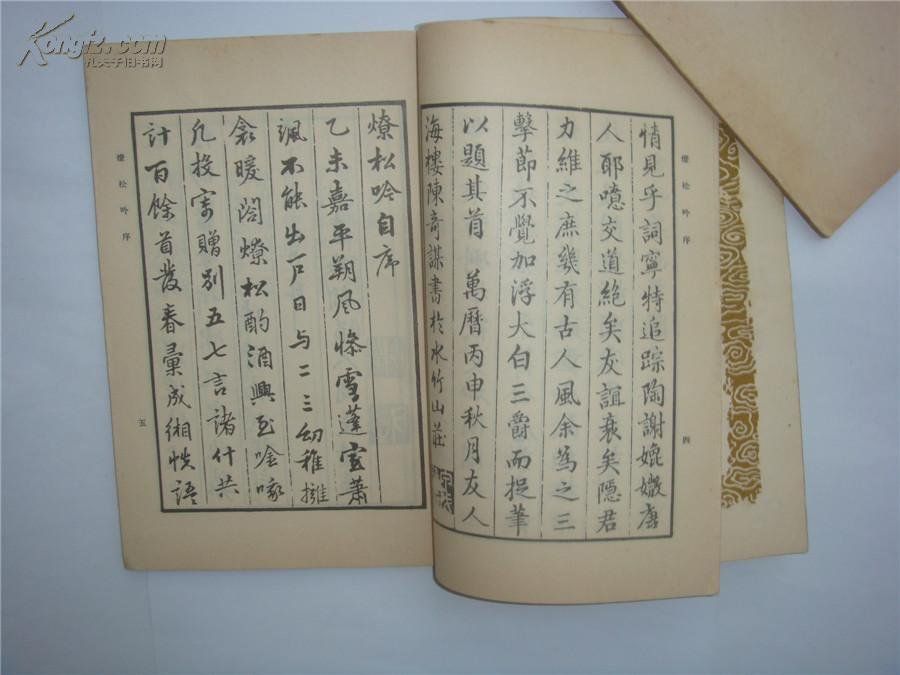 Kongfz.com
孔夫子旧书网
燎松吟序
四
情見乎詞寧特追踪陶謝媲嫩唐
人耶噫交道絶矣友誼衰矣隱君
力維之庶幾有古人風余為之三
擊節不覺加浮大白三爵而捉筆
以題其首 萬曆丙申秋月友人
海樓陳奇謀書於水竹山莊
燎松吟自序
乙未嘉平朔風慘雪蓬室蕭
颯不能出戶日与二三幼稚擁
衾暖閤燎松酌酒興至唫啄
凡投寄贈別五七言諸什共
計百餘首發春彙成緗帙語
燎松吟序
五